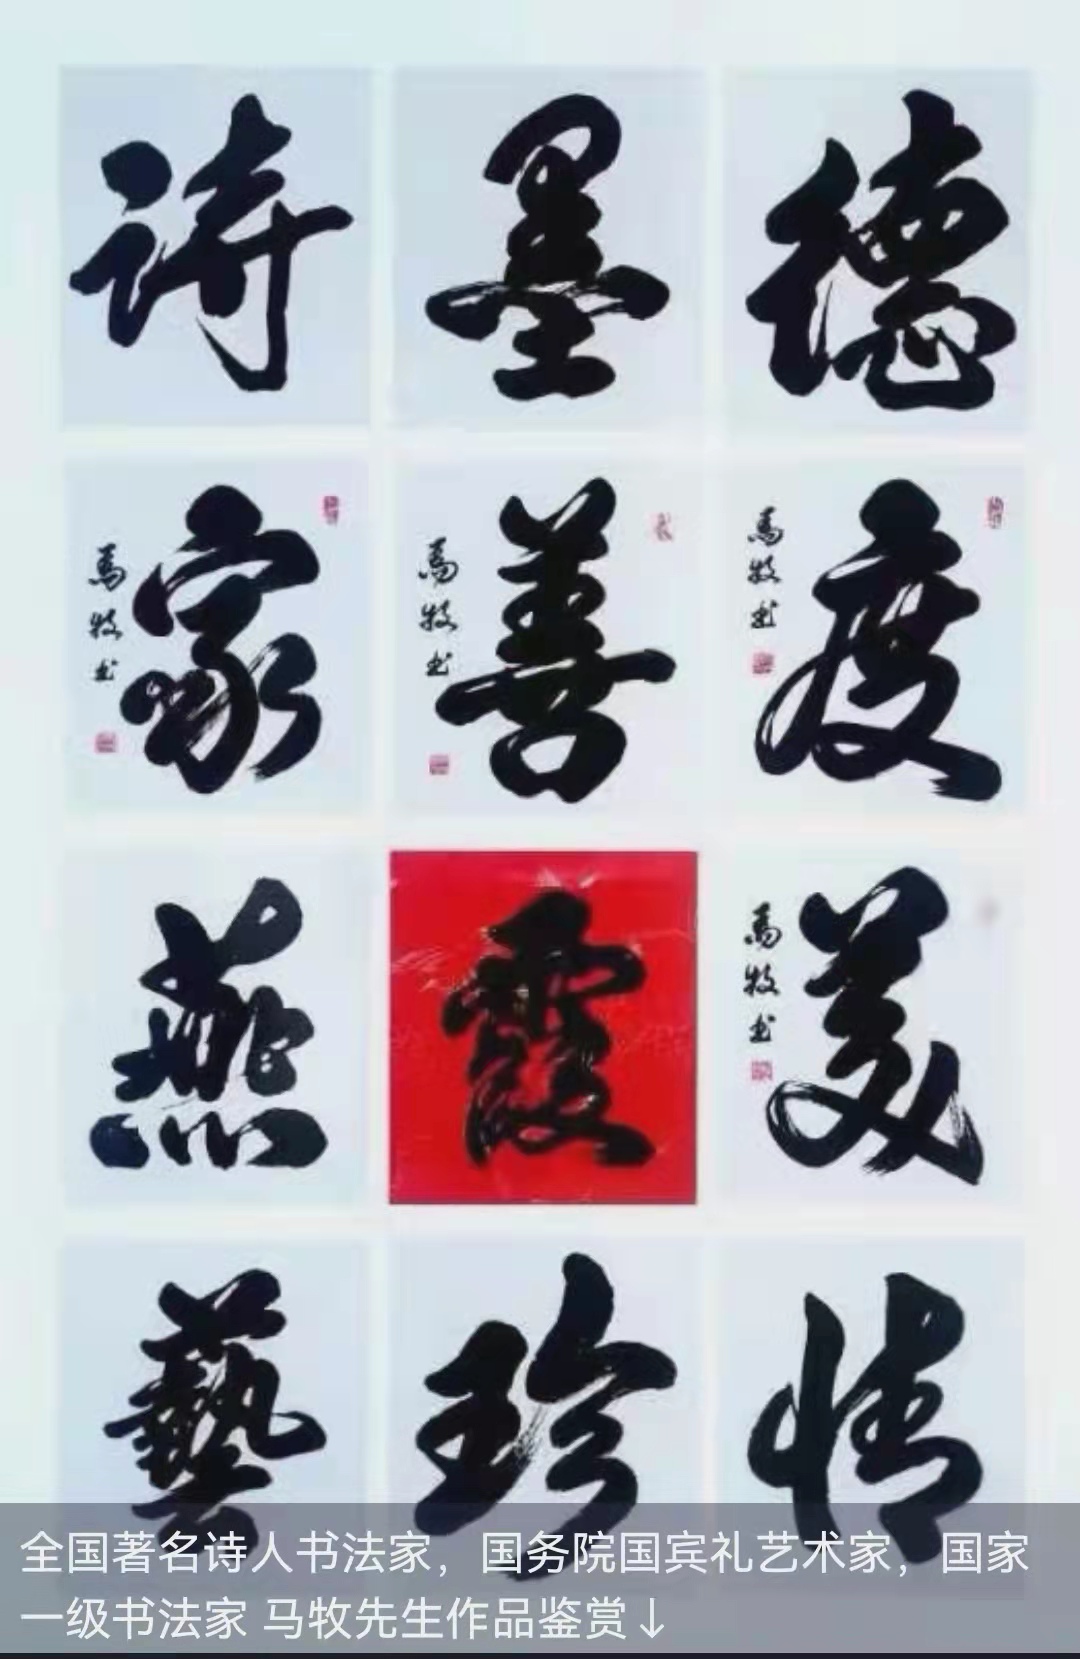 诗 墨 德
家 善 度
馬牧书 馬牧书 馬牧书
燕 霞 美
馬牧书
藝 珍 情
全国著名诗人书法家，国务院国宾礼艺术家，国家
一级书法家 马牧先生作品鉴赏↓